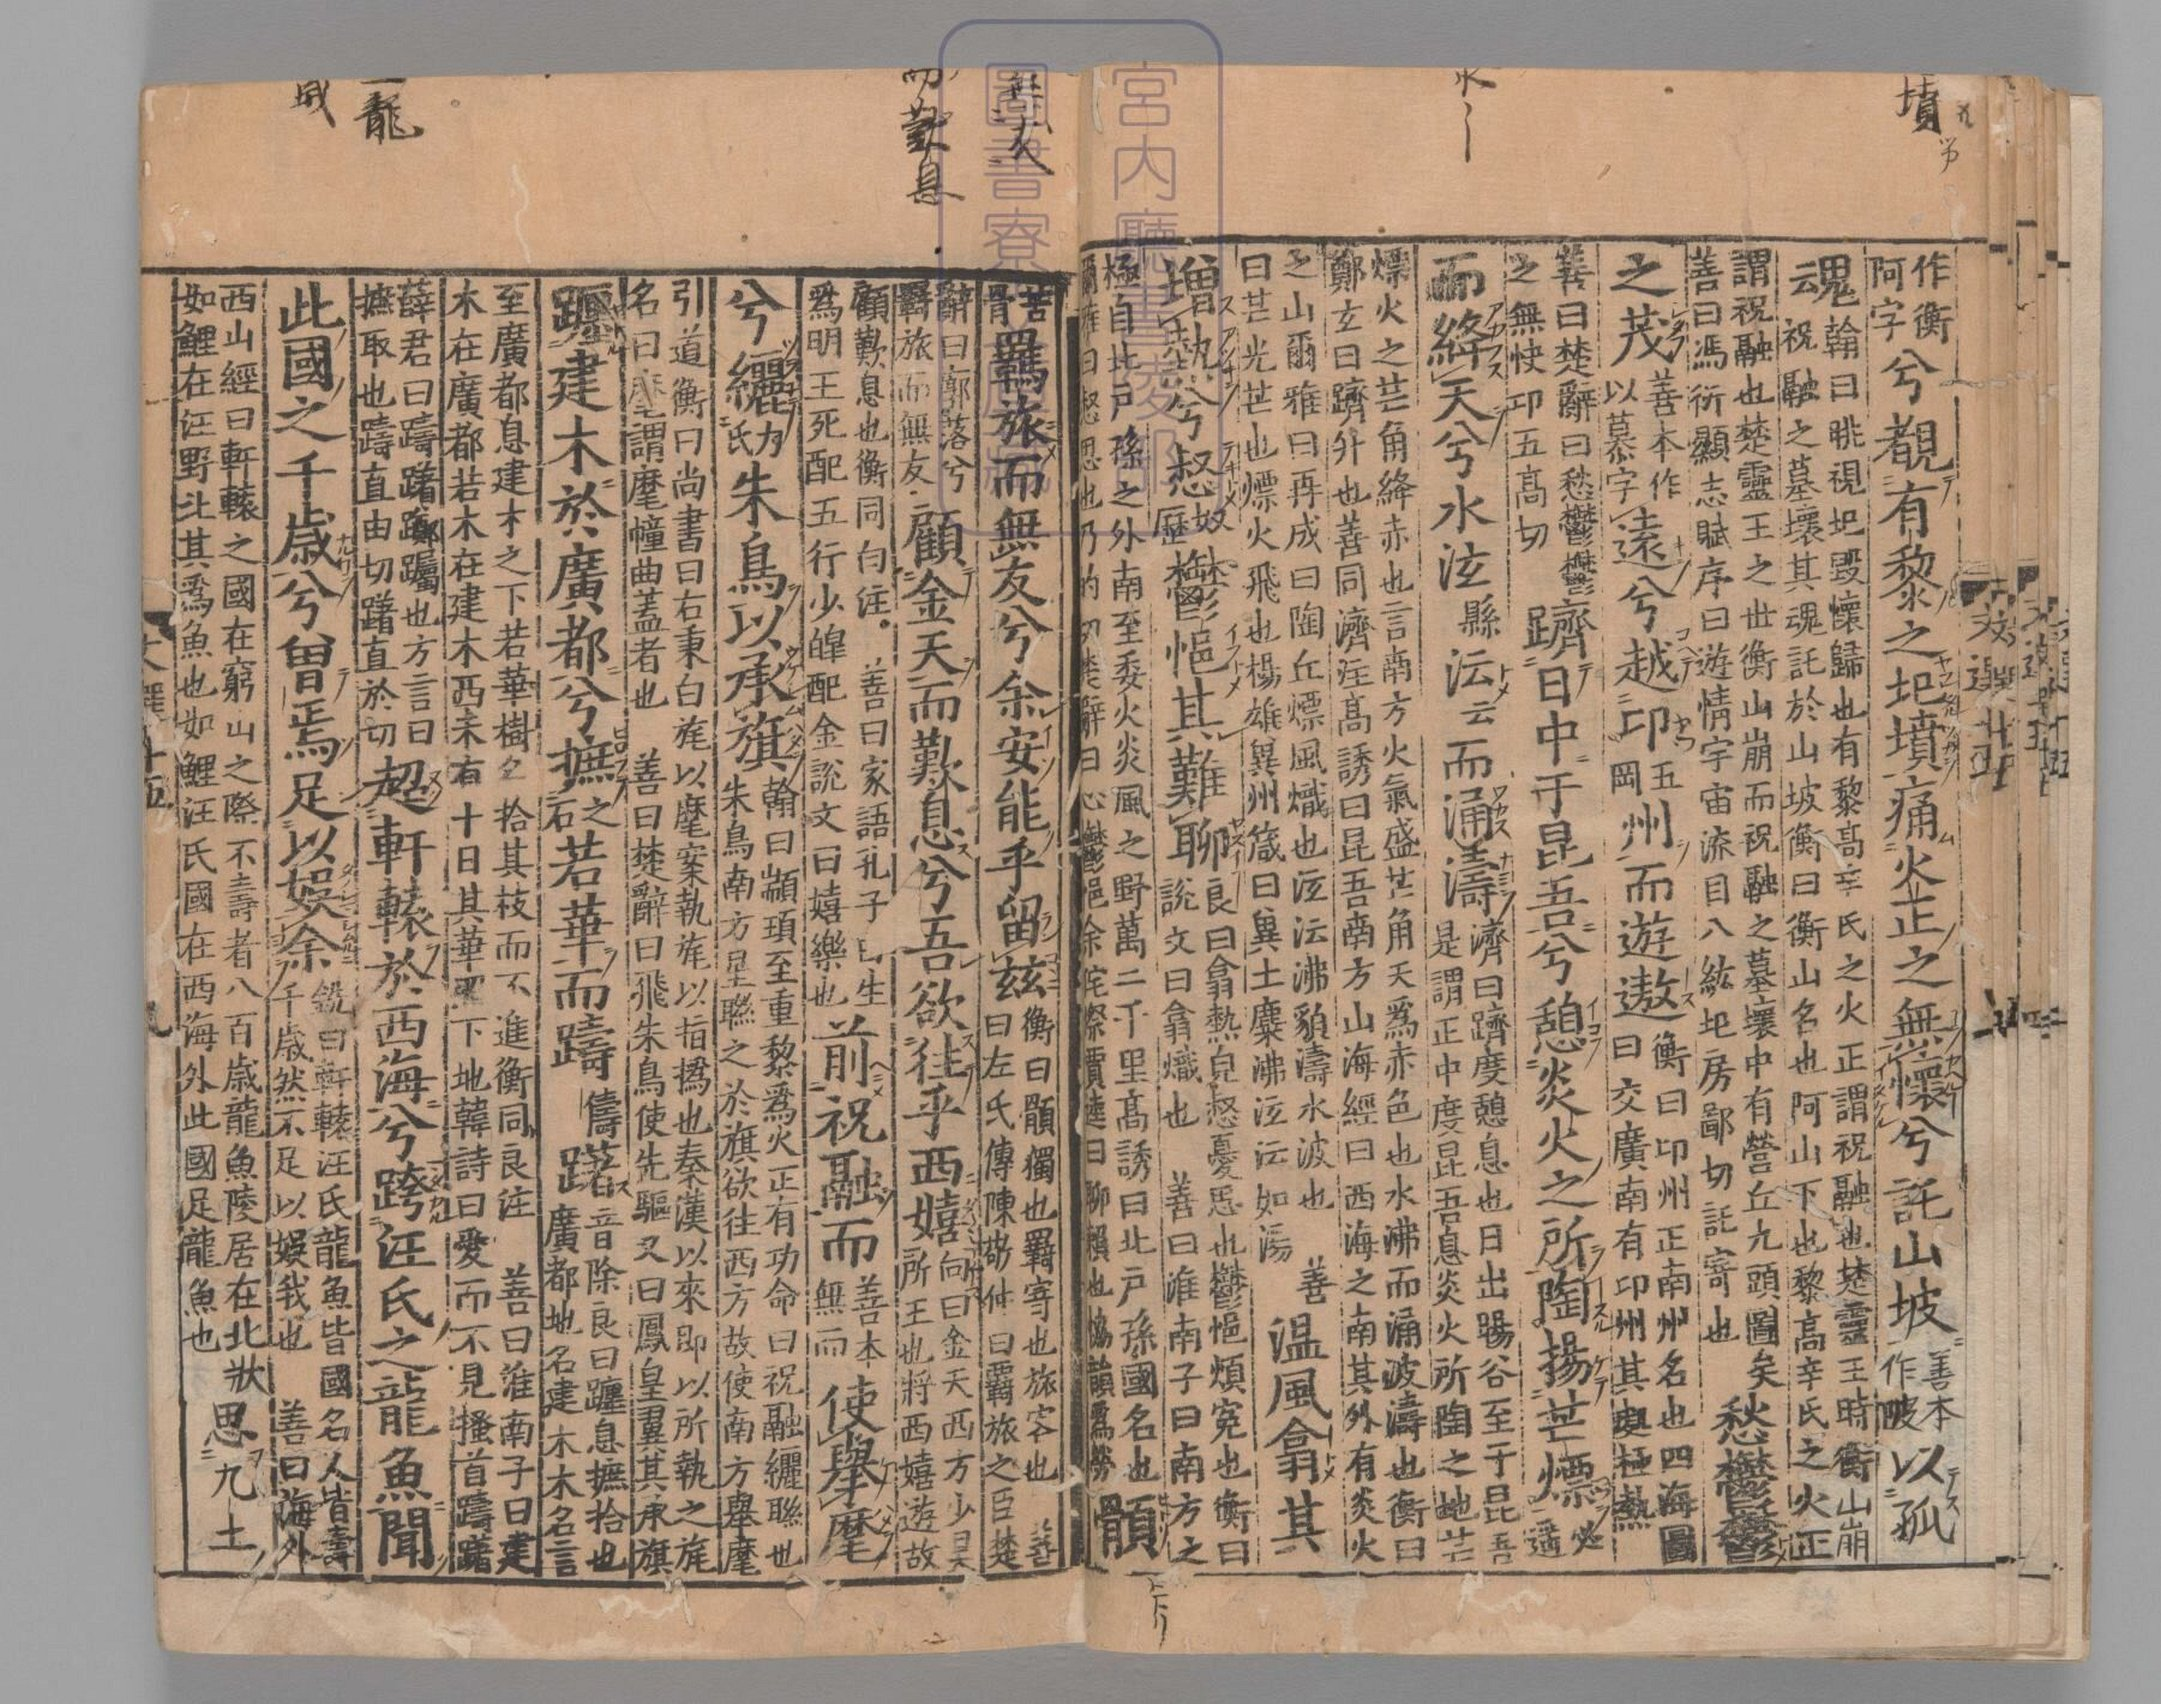 墳
作衡
阿字
兮覩有黎之圯墳痛火正之無懷兮託山坡
善本
作陂
以孤
魂
翰曰眺視圯毀懷歸也有黎高辛氏之火正謂祝融也楚靈王時衡山崩
祝融之墓壞其魂託於山坡衡曰衡山名也阿山下也黎高辛氏之火正
謂祝融也楚靈王之世衡山崩而祝融之墓壞中有營丘九頭圖矣
善曰馮衍顯志賦序曰遊情宇宙流目八紘圯房鄙切託寄也
愁鬱鬱
之茂
善本作
以慕字
遠兮越卬
五
岡
州而遊遨
衡曰卬州正南州名也四海圖
曰交廣南有卬州其極熱
善曰楚辭曰愁鬱鬱
之無快卬五高切
躋日中于昆吾兮憩炎火之所陶揚芒熛
必
遥
而絳天兮水泫
縣
沄
云
而涌濤
濟曰躋度憩息也日出暘谷至于昆吾
是謂正中度昆吾息炎火所陶之地芒
熛火之芒角絳赤也言南方火氣盛芒角天爲赤色也水沸而涌波濤也衡曰
鄭玄曰躋升也善同濟注高誘曰昆吾南方山海經曰西海之南其外有炎火
之山爾雅曰再成曰陶丘熛風熾也泫沄沸貌濤水波也　善
曰芒光芒也熛火飛也楊雄兾州箴曰兾土麋沸泫沄如湯
温風翕其
增熱兮惄
奴
歷
鬱悒其難聊
良曰翕熱皃惄憂思也鬱悒煩寃也衡曰
說文曰翕熾也　善曰淮南子曰南方之
極自北戶孫之外南至委火炎風之野萬二千里高誘曰北戶孫國名也
爾雅曰惄思也乃的切楚辭曰心鬱悒余侘傺賈逵曰聊賴也協韻爲勞
顝
苦
骨
羈旅而無友兮余安能乎留玆
衡曰顝獨也羈寄也旅客也　善
曰左氏傳陳敬仲曰羈旅之臣楚
辭曰廓落兮
羇旅而無友
顧金天而歎息兮吾欲往乎西嬉
向曰金天西方少昊
所王也將西嬉遊故
顧歎息也衡同向注　善曰家語孔子曰生
爲明王死配五行少皥配金說文曰嬉樂也
前祝融而
善本
無而
使舉麾
兮纚
力
氏
朱鳥以承旗
翰曰顓頊至重黎爲火正有功命曰祝融纚聯也
朱鳥南方星聯之於旗欲往西方故使南方舉麾
引道衡曰尚書曰右秉白旄以麾案執旄以指撝也秦漢以來即以所執之旄
名曰麾謂麾幢曲蓋者也　善曰楚辭曰飛朱鳥使先驅又曰鳳皇翼其承旗
躔建木於廣都兮摭
之
石
若華而躊
儔
躇
音除良曰躔息摭拾也
廣都地名建木木名言
至廣都息建木之下若華樹名拾其枝而不進衡同良注　善曰淮南子曰建
木在廣都若木在建木西末有十日其華照下地韓詩曰愛而不見搔首躊躇
薛君曰躊躇躑躅也方言曰
摭取也躊直由切躇直於切
超軒轅於西海兮跨汪氏之龍魚聞
此國之千歲兮曾焉足以娛余
銑曰軒轅汪氏龍魚皆國名人皆壽
千歲然不足以娛我也　善曰海外
西山經曰軒轅之國在窮山之際不壽者八百歲龍魚陵居在北狀
如鯉在汪野北其爲魚也如鯉汪氏國在西海外此國足龍魚也
思九土
宮内廳
圖書寮